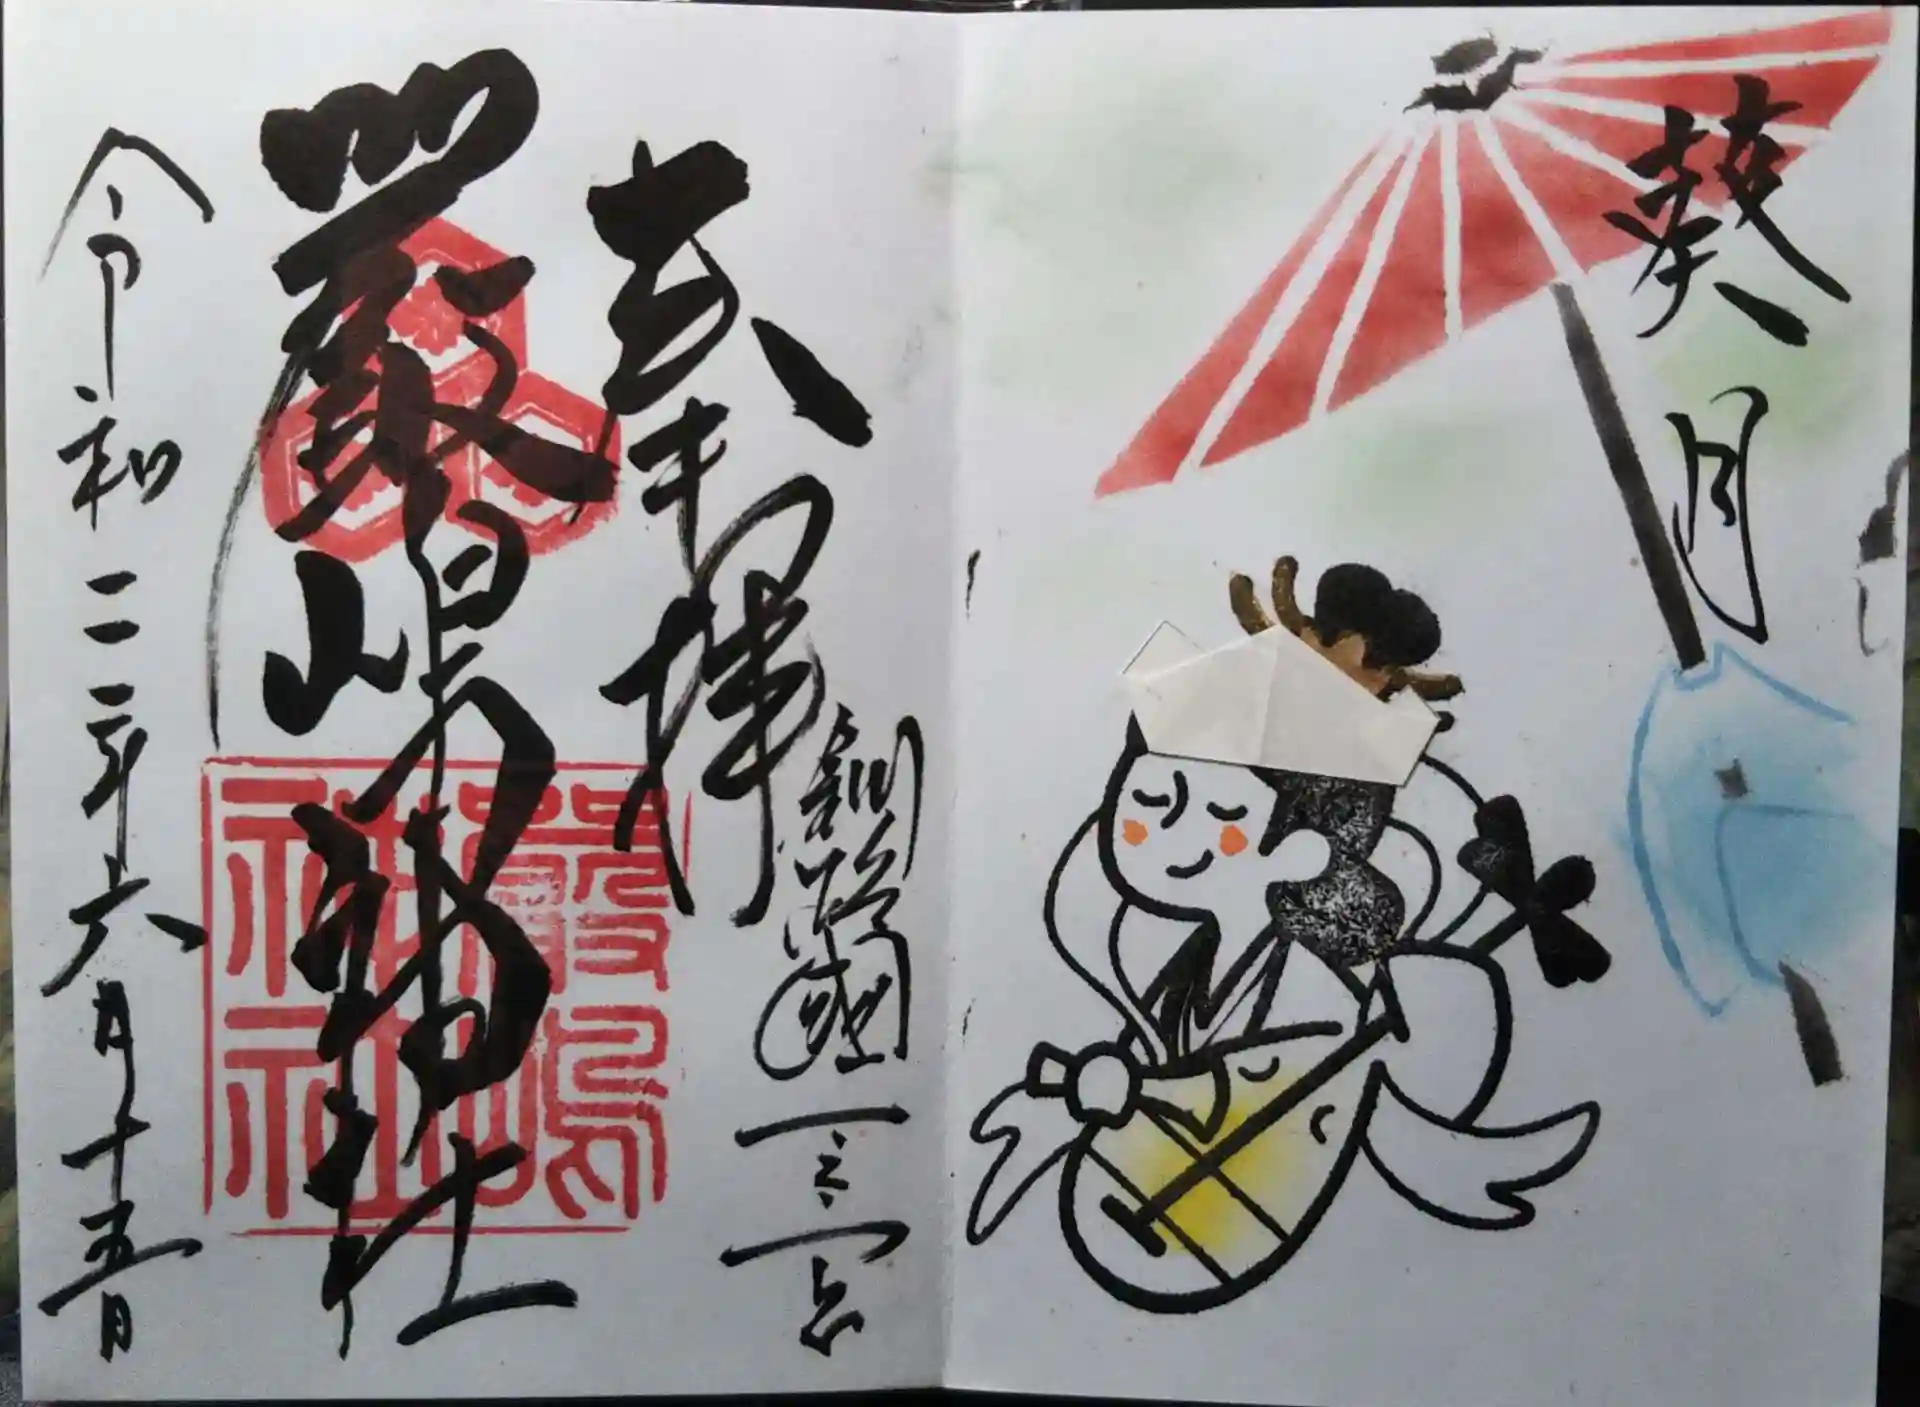 葵月
奉拝
釧路國一之宮
厳嶋神社
嚴嶋神社
令和二年六月十五日